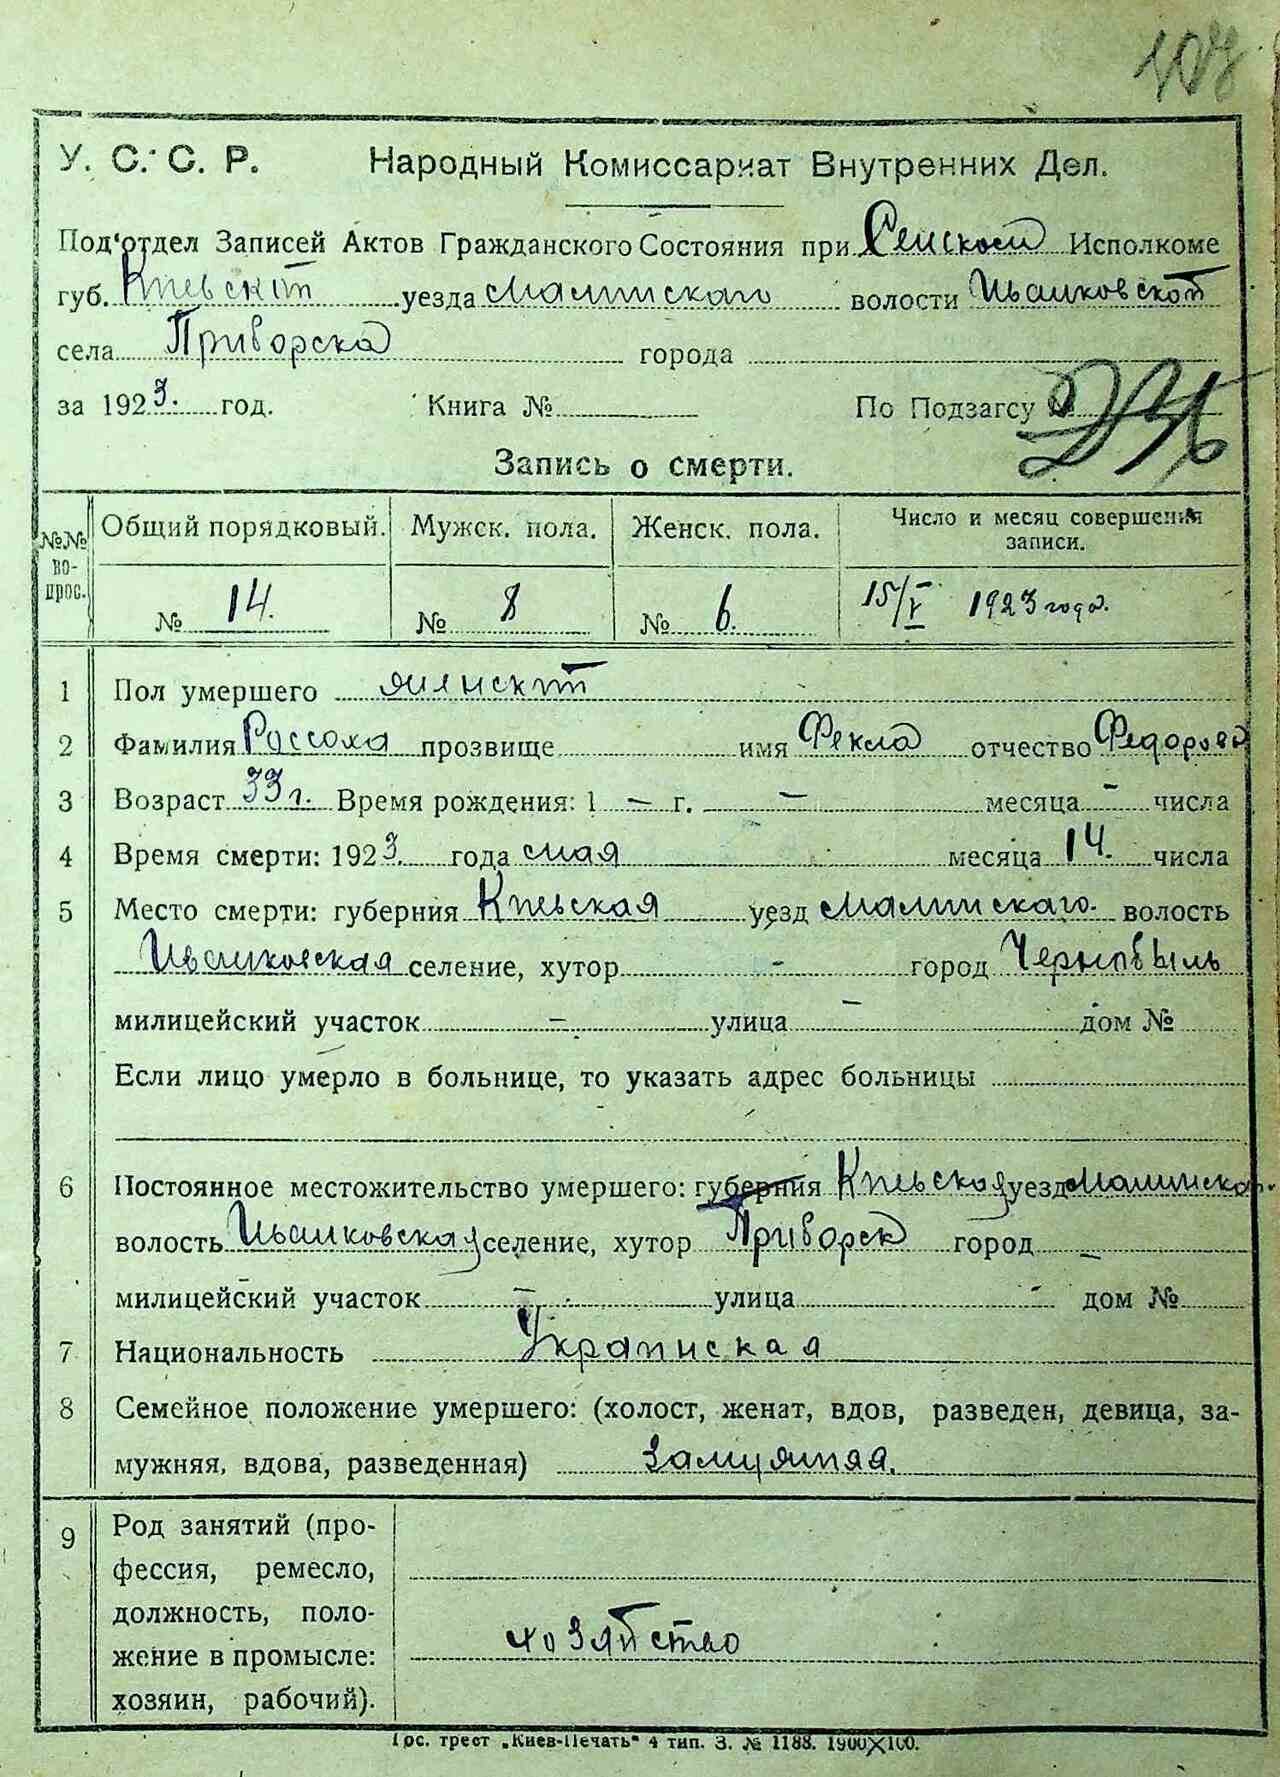 107
У. С. С. Р. Народный Комиссариат Внутренних Дел.
Под'отдел Записей Актов Гражданского Состояния при Сельском Исполкоме
губ. Киевской уезда Малинскаго волости Иванковской
села Приворска города
за 1923. год. Книга № По Подзагсу №
Запись о смерти.
№№ во-прос. Общий порядковый. Мужск. пола. Женск. пола. Число и месяц совершения записи.
№ 14. № 8 № 6. 15/V 1923 года.
1 Пол умершего женский
2 Фамилия Россоха прозвище имя Фекла отчество Федоровa
3 Возраст 33 г. Время рождения: 1 – г. – месяца – числа
4 Время смерти: 1923. года мая месяца 14. числа
5 Место смерти: губерния Киевская уезд Малинскаго. волость
Иванковская селение, хутор - город Чернобыль
милицейский участок – улица – дом №
Если лицо умерло в больнице, то указать адрес больницы
6 Постоянное местожительство умершего: губерния Киевская уезд Малинскаго.
волость Иванковская селение, хутор Приворск город –
милицейский участок – улица - дом №
7 Национальность Украинская
8 Семейное положение умершего: (холост, женат, вдов, разведен, девица, за-
мужняя, вдова, разведенная) Замужняя.
9 Род занятий (про-
фессия, ремесло,
должность, поло-
жение в промысле: хозяйство
хозяин, рабочий).
Гос. трест „Киев-Печать" 4 тип. З. № 1188. 1900X100.